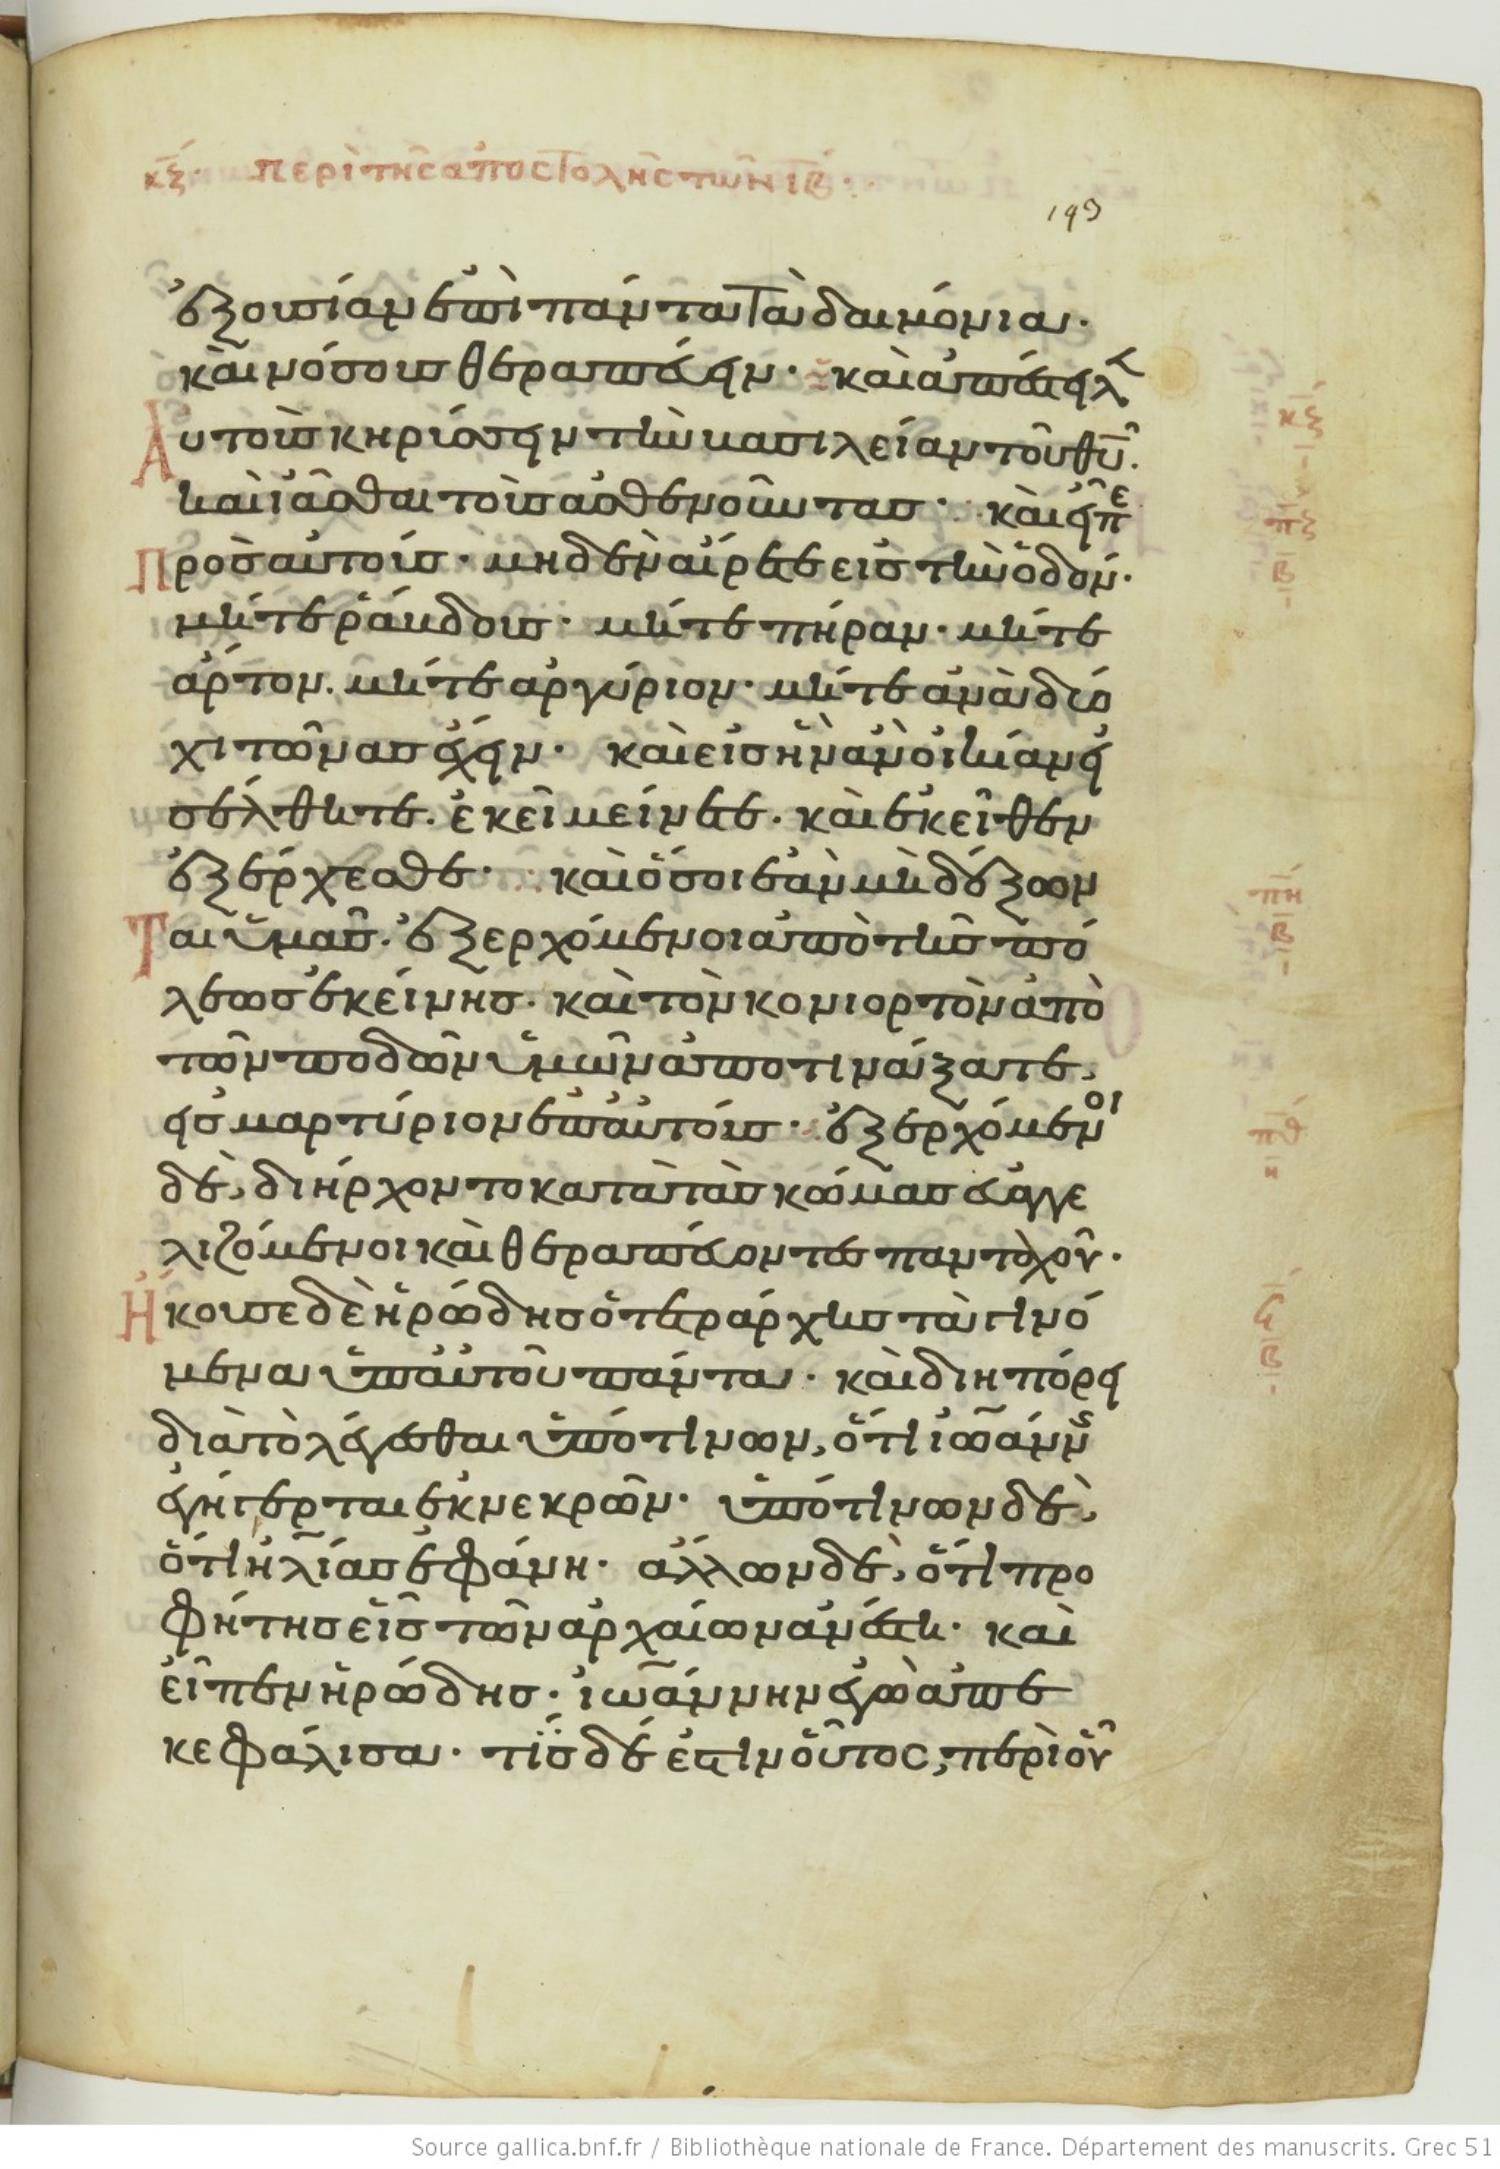 κξ· περὶ τῆς ἀποστολῆς τῶν ιβ·
193
ἐξουσίαν ἐπὶ πάντα τὰ δαιμόνια·
καὶ νόσους θεραπεύειν· καὶ ἀπέστειλ
Αυτοὺς κηρύσσειν τὴν βασιλείαν τοῦ θυ̅·
καὶ ἰᾶσθαι τοὺς ἀσθενοῦντας· καὶ εἶπε
Προς αὐτούς· μηδὲν αἴρετε εἰς τὴν ὁδόν·
μήτε ῥάβδους· μήτε πήραν· μήτε
ἄρτον. μήτε ἀργύριον· μήτε ἀνὰ δύο
χιτῶνας ἔχειν· καὶ εἰς ἣν ἂν οἰκίαν εἰ
σέλθητε. ἐκεῖ μείνετε. καὶ ἐκεῖθεν
ἐξέρχεσθε· καὶ ὅσοι ἐὰν μὴ δέξων
Ται ὑμᾶς. ἐξερχόμενοι ἀπὸ τῆς πό
λεως ἐκείνης. καὶ τὸν κονιορτὸν ἀπὸ
τῶν ποδῶν ὑμῶν ἀποτινάξατε,
εἰς μαρτύριον ἐπ αὐτούς· ἐξερχόμενοι
δὲ, διήρχοντο κατὰ τὰς κώμας εὐαγγε
λιζόμενοι καὶ θεραπεύοντες πανταχοῦ·
Ηκουσε δὲ ἡρώδης ὁ τετράρχης τὰ γινό
μενα ὑπ αὐτοῦ πάντα· καὶ διηπόρει
διὰ τὸ λέγεσθαι ὑπό τινων, ὅτι ἰωάννης
ἐγήγερται ἐκ νεκρῶν· ὑπό τινων δὲ,
ὅτι ἠλίας ἐφάνη· ἄλλων δὲ, ὅτι προ
φήτης εἷς τῶν ἀρχαίων ἀνέστη· καὶ
εἶπεν ἡρώδης· ἰωάννην ἐγὼ ἀπε
κεφάλισα· τίς δέ ἐστιν οὗτος, περὶ οὗ
κξ
πξ
β
πη
β
πθ
η
ϟ
β
Source gallica.bnf.fr / Bibliothèque nationale de France. Département des manuscrits. Grec 51